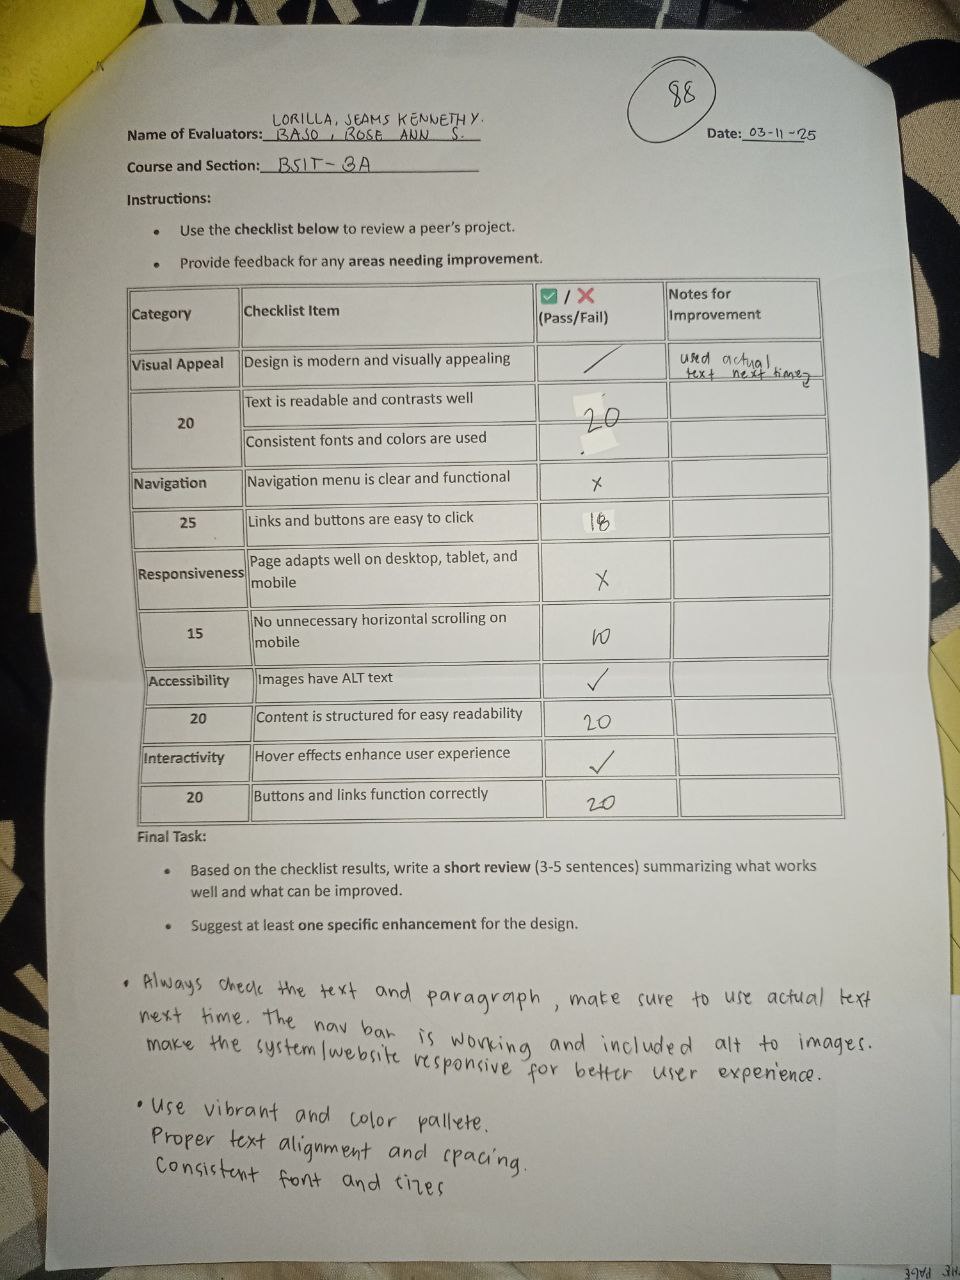 88
LORILLA, JEAMS KENNETH Y.
Name of Evaluators: BASO, ROSE ANN S.
Date: 03-11-25
Course and Section: BSIT-3A
Instructions:
• Use the checklist below to review a peer's project.
• Provide feedback for any areas needing improvement.
Category Checklist Item ✅ / ❌ (Pass/Fail) Notes for Improvement
Visual Appeal Design is modern and visually appealing / used actual text next time
20 Text is readable and contrasts well 20
Consistent fonts and colors are used
Navigation Navigation menu is clear and functional x
25 Links and buttons are easy to click 18
Responsiveness Page adapts well on desktop, tablet, and mobile x
15 No unnecessary horizontal scrolling on mobile 10
Accessibility Images have ALT text ✓
20 Content is structured for easy readability 20
Interactivity Hover effects enhance user experience ✓
20 Buttons and links function correctly 20
Final Task:
• Based on the checklist results, write a short review (3-5 sentences) summarizing what works
well and what can be improved.
• Suggest at least one specific enhancement for the design.
• Always check the text and paragraph, make sure to use actual text
next time. The nav bar is working and included alt to images.
make the system/website responsive for better user experience.
• Use vibrant and color pallete.
Proper text alignment and spacing.
Consistent font and sizes